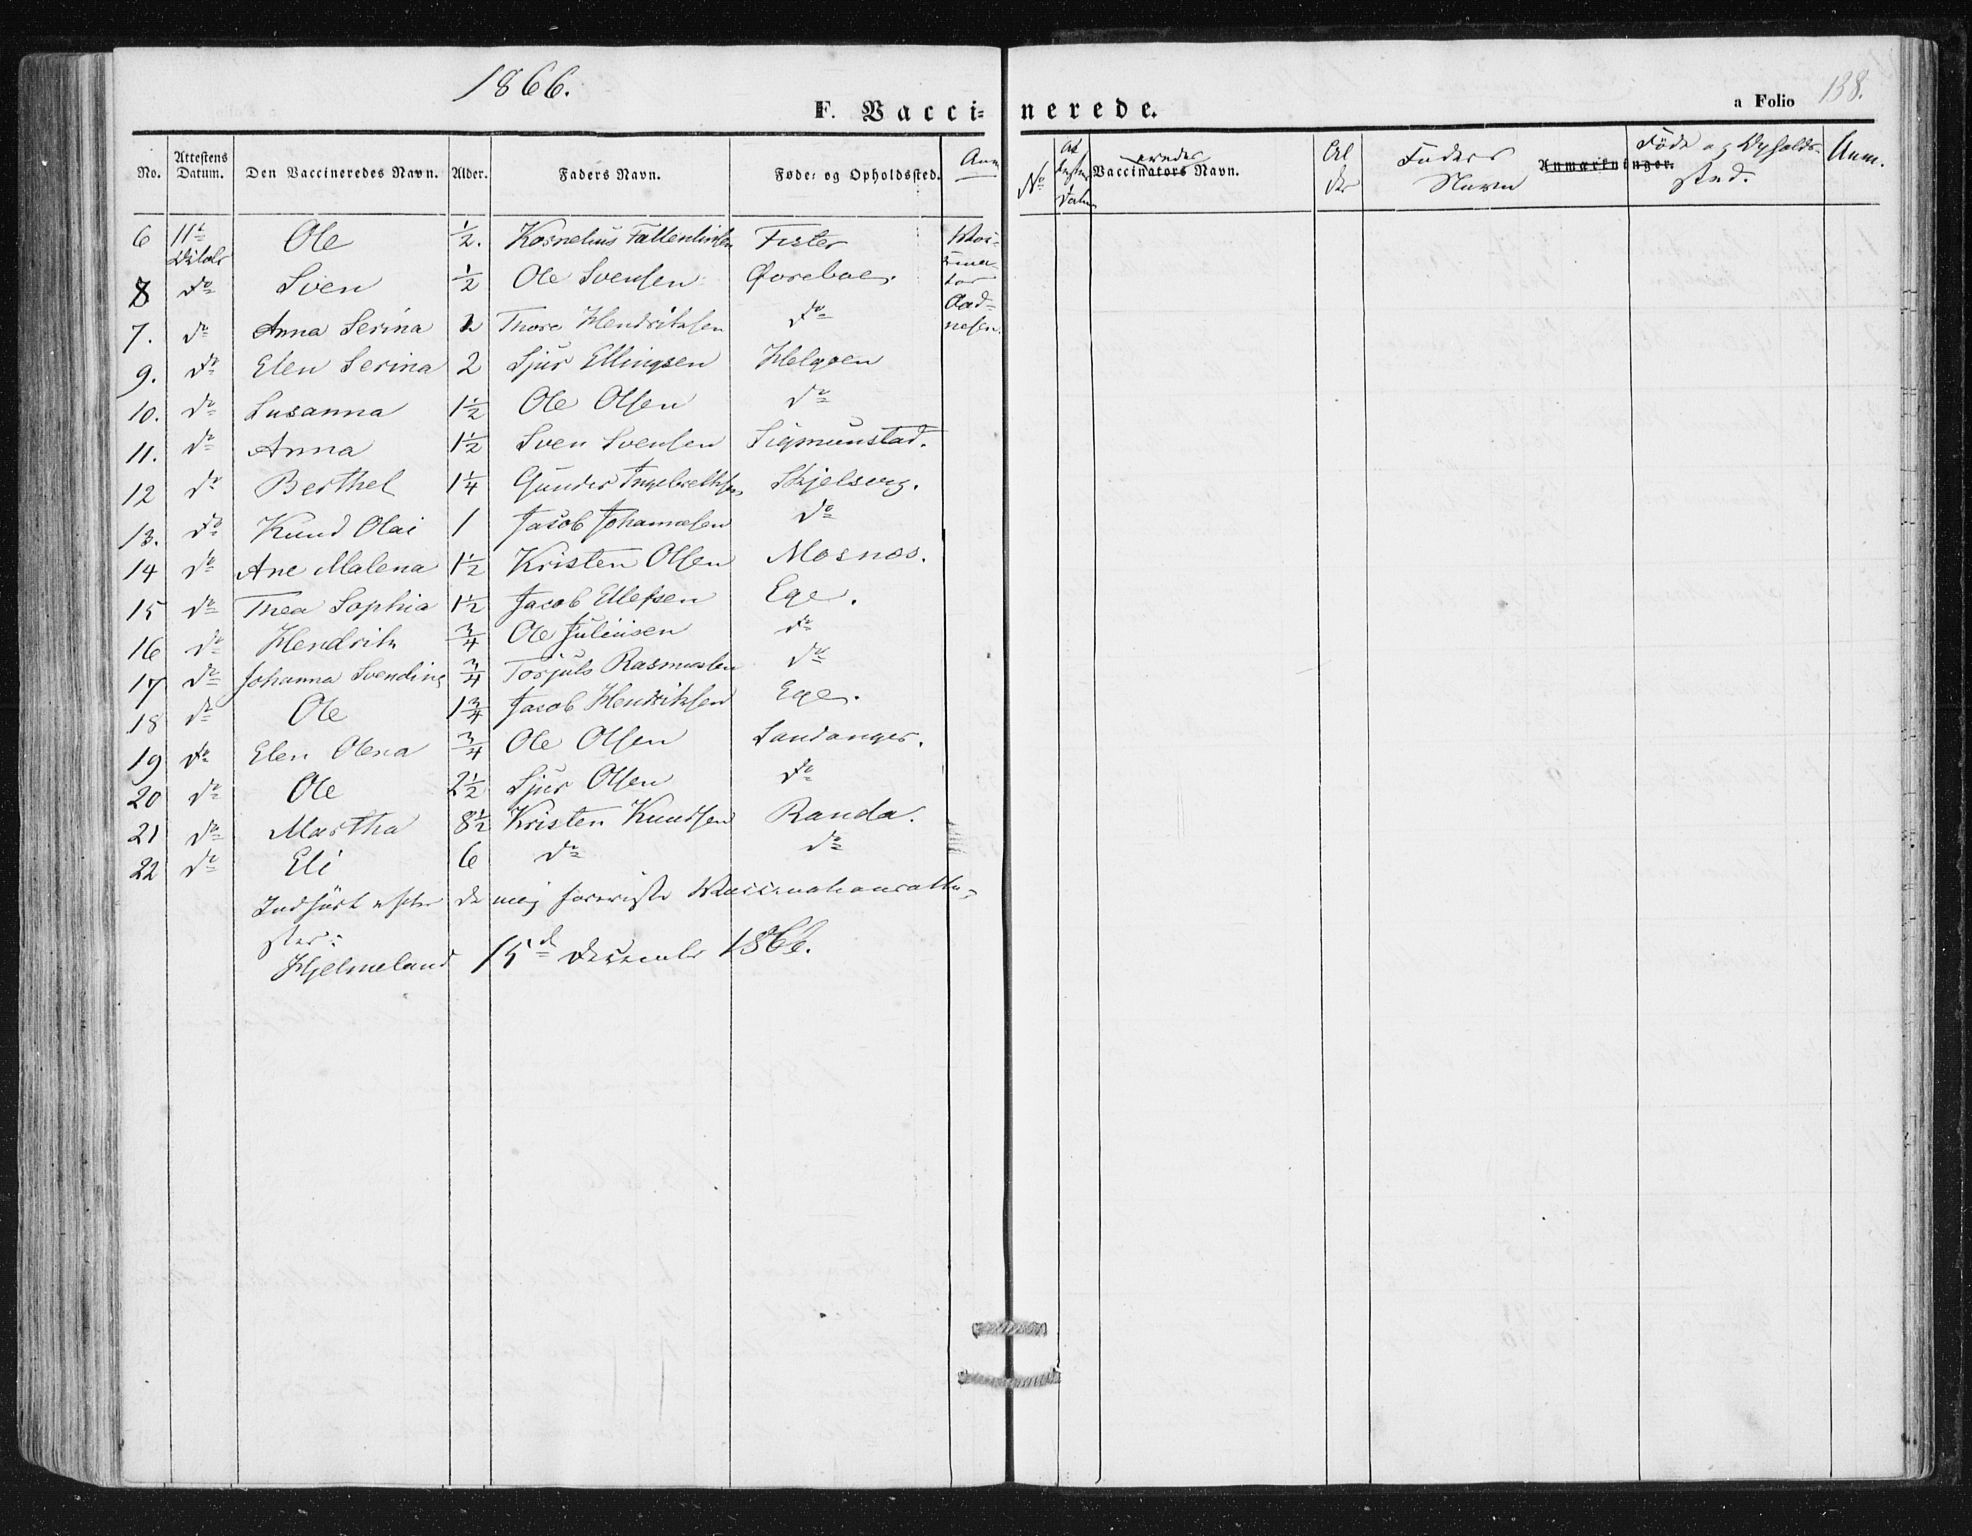 1866.
F. Vaccinerede.
a Folio 138.
No. Attestens Datum. Den Vaccineredes Navn. Alder. Faders Navn. Føde- og Opholdssted. Anm.
No Vaccinators Navn. eredes Al der Faders Navn Anmærkninger. Føde og Opholds- sted. Anm.
6 11te Octobr Ole 1/2. Kornelius Fister
8 do Sven 1/2 Ole Svensen Øvreboe.
7. do Anna Serina 2 Thore Hendriksen do
Vaccinator Aadnesen.
9. do Elen Serina 2 Sjur Ellingsen Helgøen
10. do Susanna 1 1/2 Ole Olsen do
11. do Anna 1 1/2 Sven Svensen Sigmunstad.
12 do Berthel 1 1/4 Gunder Ingebrethsen Skjelveg.
13. do Knud Olai 1 Jacob Johannesen do
14 do Ane Malena 1 1/2 Kristen Olsen Mosnæs.
15 do Thea Sophia 1 1/2 Jacob Ellefsen Ege.
16 do Hendrik 3/4 Ole Juliusen do
17 do Johanna Svendine 3/4 Torjuls Rasmussen do
18 do Ole 1 3/4 Jacob Hendriksen Ege.
19 do Elen Olena 3/4 Ole Olsen Landanger.
20 do Ole 2 1/2 Sjur Olsen do
21 do Martha 8 1/2 Kristen Knudsen Randa.
22 do Eli 6 do do
Indført efter de mig foreviste Vaccinationsatte-
ster.
Hjelmeland 15d December 1866.